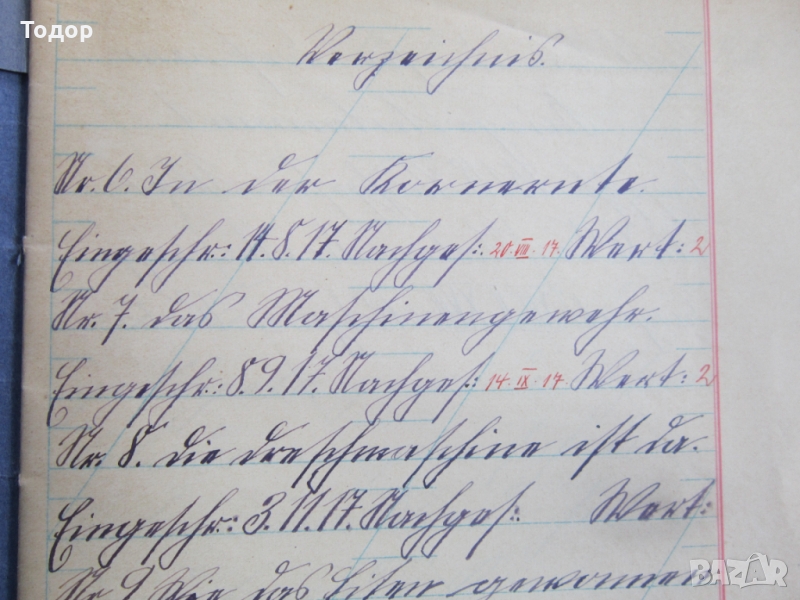 Todor
Verzeichnis.
Nr. 6. In der Kornernte.
Eingeschr.: 14. 8. 17. Nachges.: 20. VIII. 17. Wert: 2
Nr. 7. das Maschinengewehr.
Eingeschr.: 8. 9. 17. Nachges.: 14. IX. 17. Wert: 2
Nr. 8. die dreschmaschine ist da.
Eingeschr.: 3. 11. 17. Nachges.: Wert:
Nr. 9 Wie das Eisen gewonnen
BAZAR